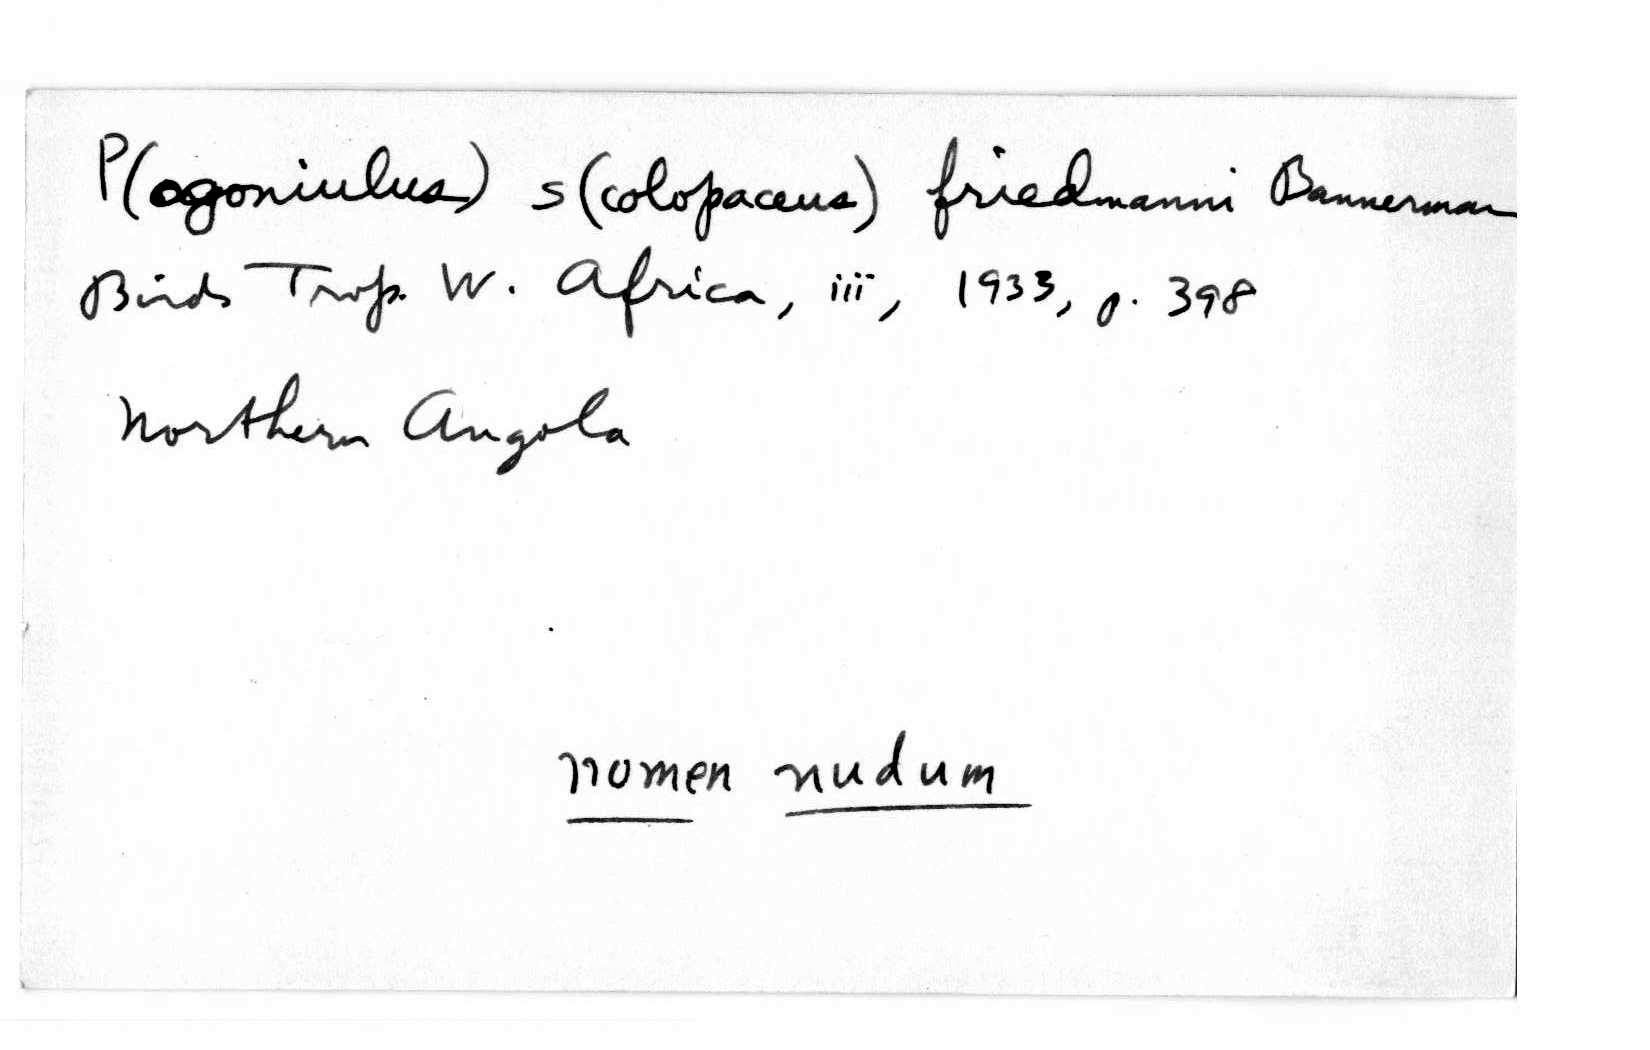 P(ogoniulus) s(colopaceus) friedmanni Bannerman
Birds Trop. W. Africa, iii, 1933, p. 398
Northern Angola
nomen nudum